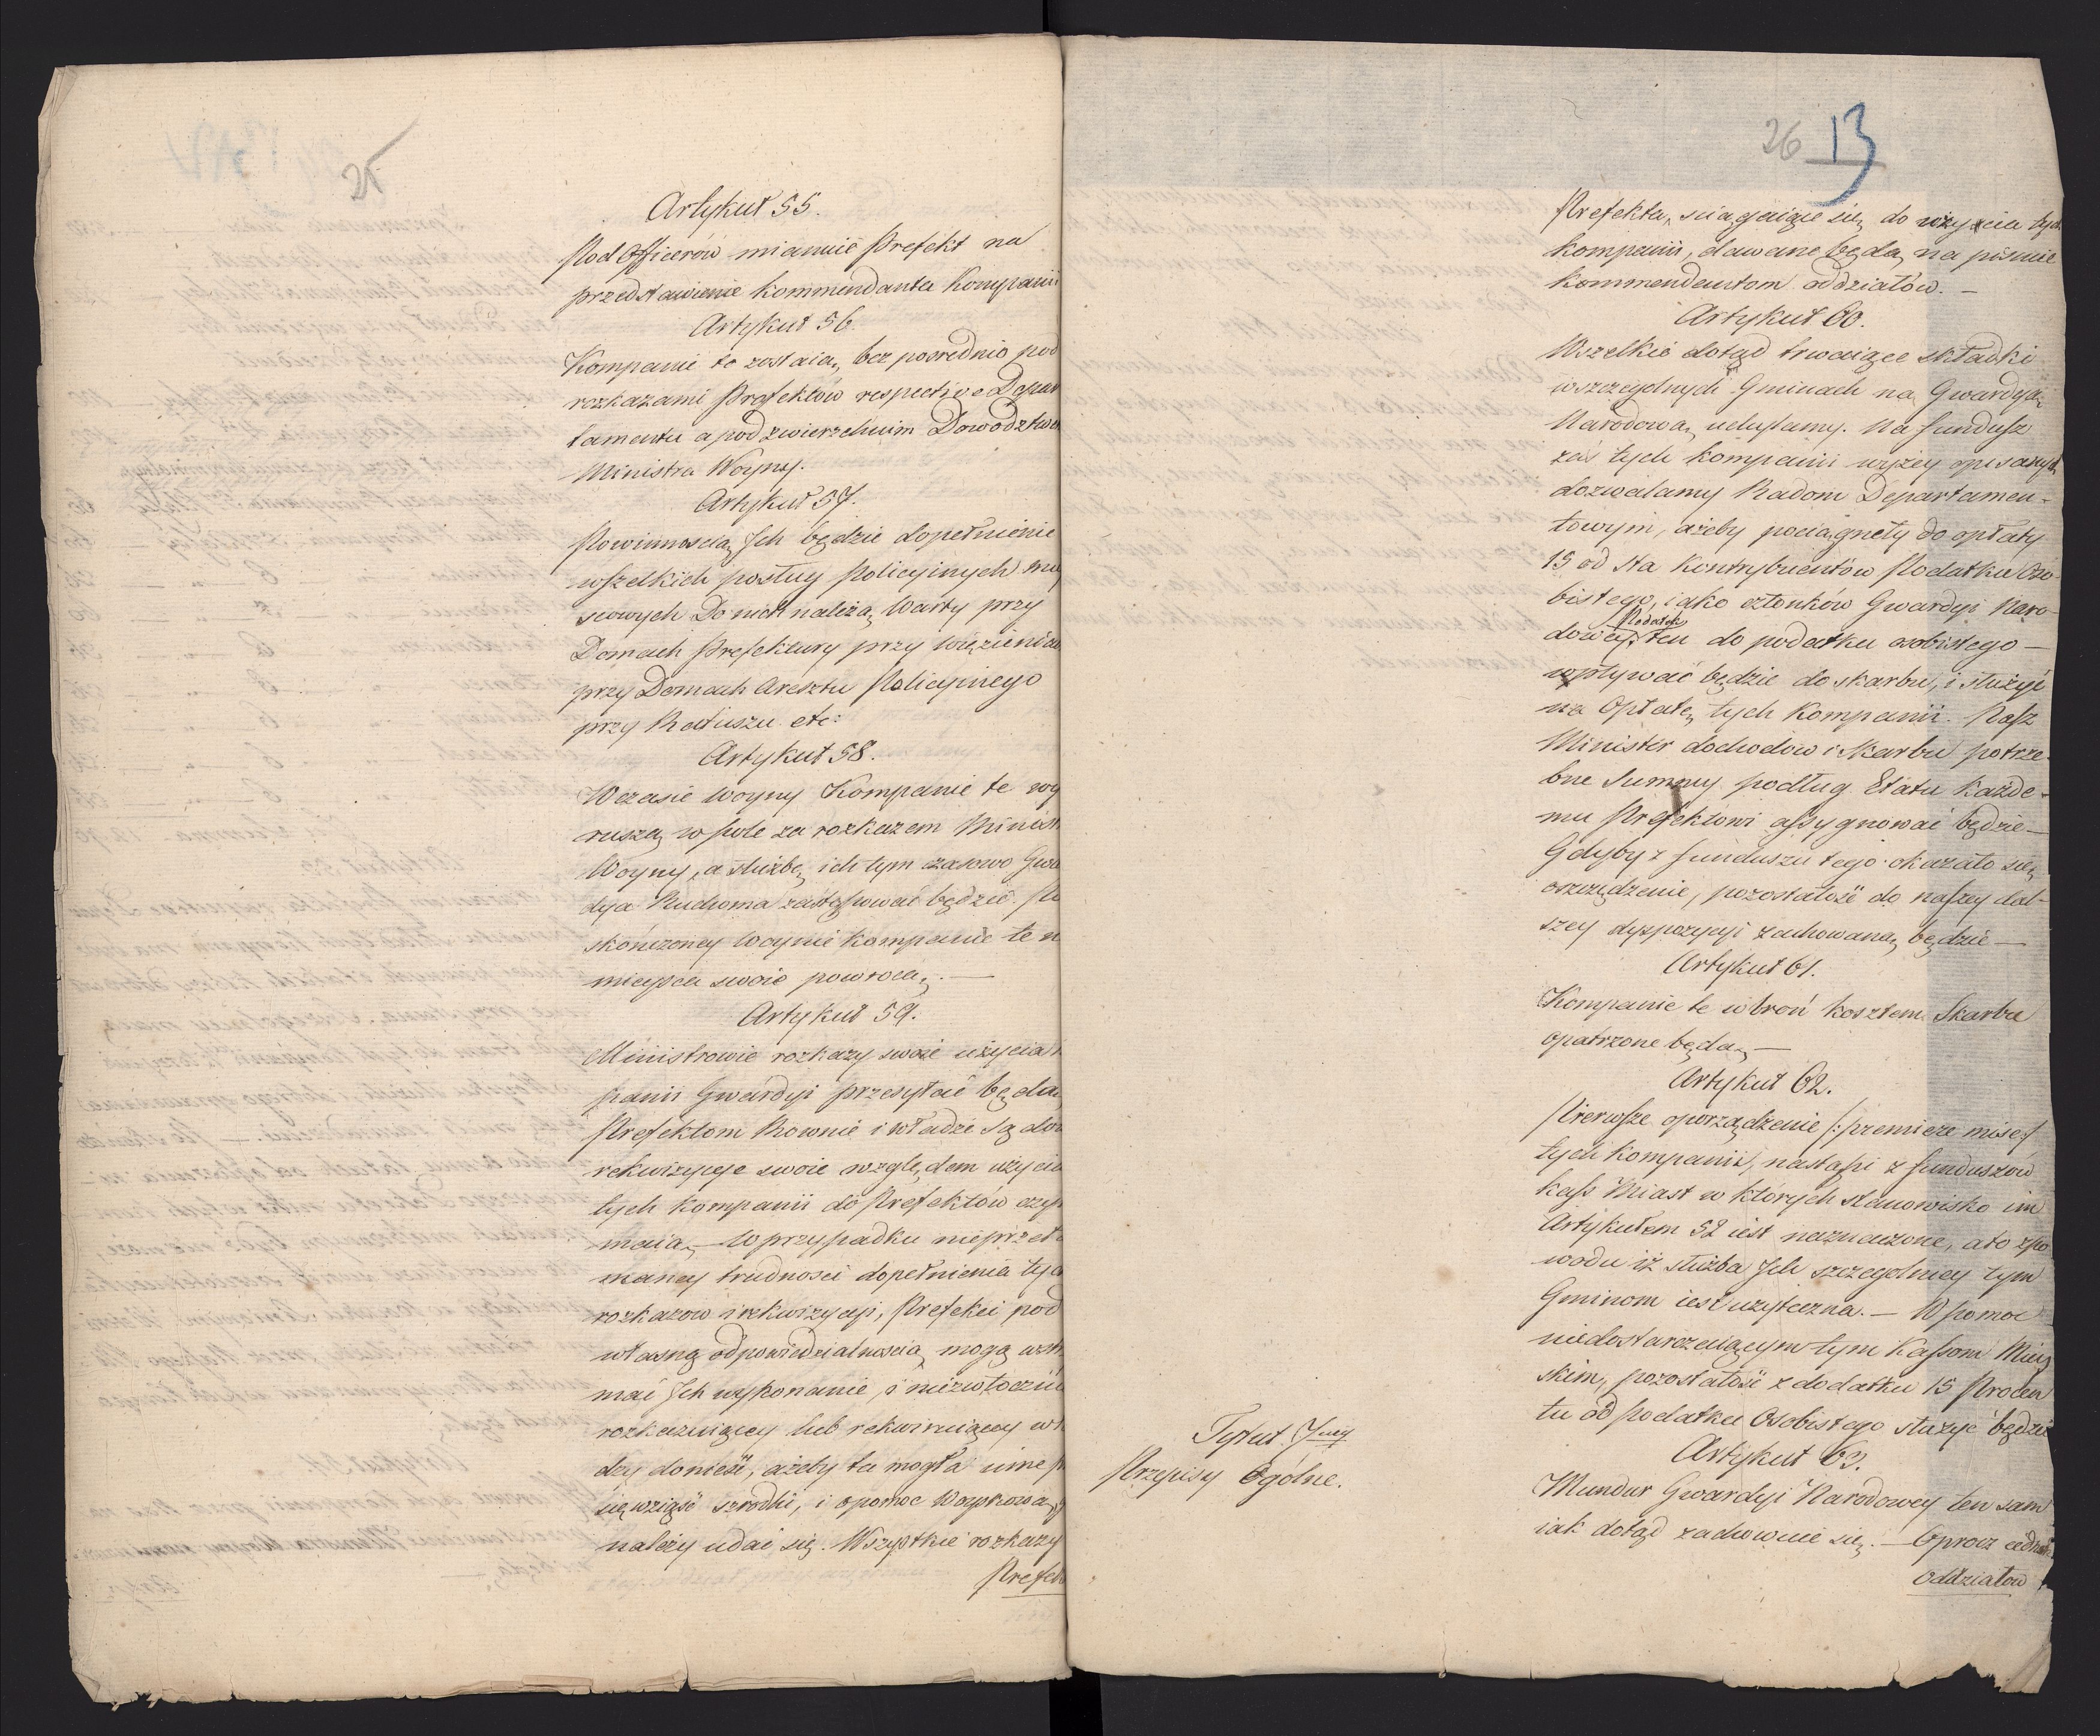 25
Artykuł 55.
Pod Officerów mianuie Prefekt na
przedstawienie Kommendanta Kompanii
Artykuł 56.
Kompanie te zostaią bez pośrednio pod
rozkazami Prefektów respective Depar
tamentu a pod zwierzchnim Dowodztwe
Ministra Woyny.
Artykuł 57.
Powinnoscią Ich będzie dopełnienie
wszelkich posług Policyinych
scowych Do nich należą Warty przy
Domach Prefektury przy więzieniach
przy Domach Aresztu Policyinego
przy Ratuszu etc:
Artykuł 58.
W czasie Woyny Kompanie te wy
ruszą w pole za rozkazem Minist
Woyny, a służbę ich tym czasowo Gwa
dya Ruchoma zastępować będzie. Po
skończoney Woynie Kompanie te n
mieysca swoie powrocą. —
Artykuł 59.
Ministrowie rozkazy swoie użycia
panii Gwardyi przesyłać będą
Prefektom Rownie i władze
rekwizycye swoie względem użycia
tych Kompanii do Prefektów czy
maią — W przypadku nieprzeła
maney trudnosci dopełnienia tyc
rozkazow i rekwizycyi, Prefekci pod
własną odpowiedzialnoscią mogą wstrz
mać Ich wykonanie, i niezwłocznie
rozkazuiącey lub rekwiruiącey w
dzy donieść, ażeby ta mogła inne
się wziąść szrodki, i o pomoc Woyskową
należy udać się. Wszystkie rozkazy
Prefek
26 13
Prefekta, sciągaiące się do użycia tych
kompanii, dawane będą na pismie
Kommendantom oddziałów. —
Artykuł 60.
Wszelkie dotąd trwaiące składki
w szczegolnych Gminach na Gwardyą
Narodową uchylamy. Na fundusz
zaś tych kompanii wyżey opisanych
dozwalamy Radom Departamen-
towym, ażeby pociągnęły do opłaty
15 od Sta Kontrybuentów Podatku Oso-
bistego, iako członków Gwardyi Naro-
Podatek
dowey. ten do podatku osobistego —
wpływać będzie do skarbu, i służyć
na Opłatę tych Kompanii. Nasz
Minister dochodów i Skarbu potrze-
bne Summy podług Etatu każde-
mu Prefektowi assygnować będzie —
Gdyby z funduszu tego okazało się
oszczędzenie, pozostałość do naszey dal-
szey dyspozycyi zachowaną będzie —
Artykuł 61.
Kompanie te w broń kosztem Skarbu
opatrzone będą —
Artykuł 62.
Pierwsze oporządzenie /:premiere mise:/
tych Kompanii, nastąpi z funduszów
kass Miast w których stanowisko im
Artykułem 52 iest naznaczone, a to z po
wodu iż służba Ich szczegolniey tym
Gminom iest użyteczna. — W pomoc
niedostarczaiącym tym Kassom Miey
skim, pozostałość z dodatku 15 Procen
tu od podatku Osobistego służyć będzie
Tytuł
Przepisy Ogólne.
Artykuł 63.
Mundur Gwardyi Narodowey ten sam
iak dotąd zachowuie się. — Oprocz
Oddziałów